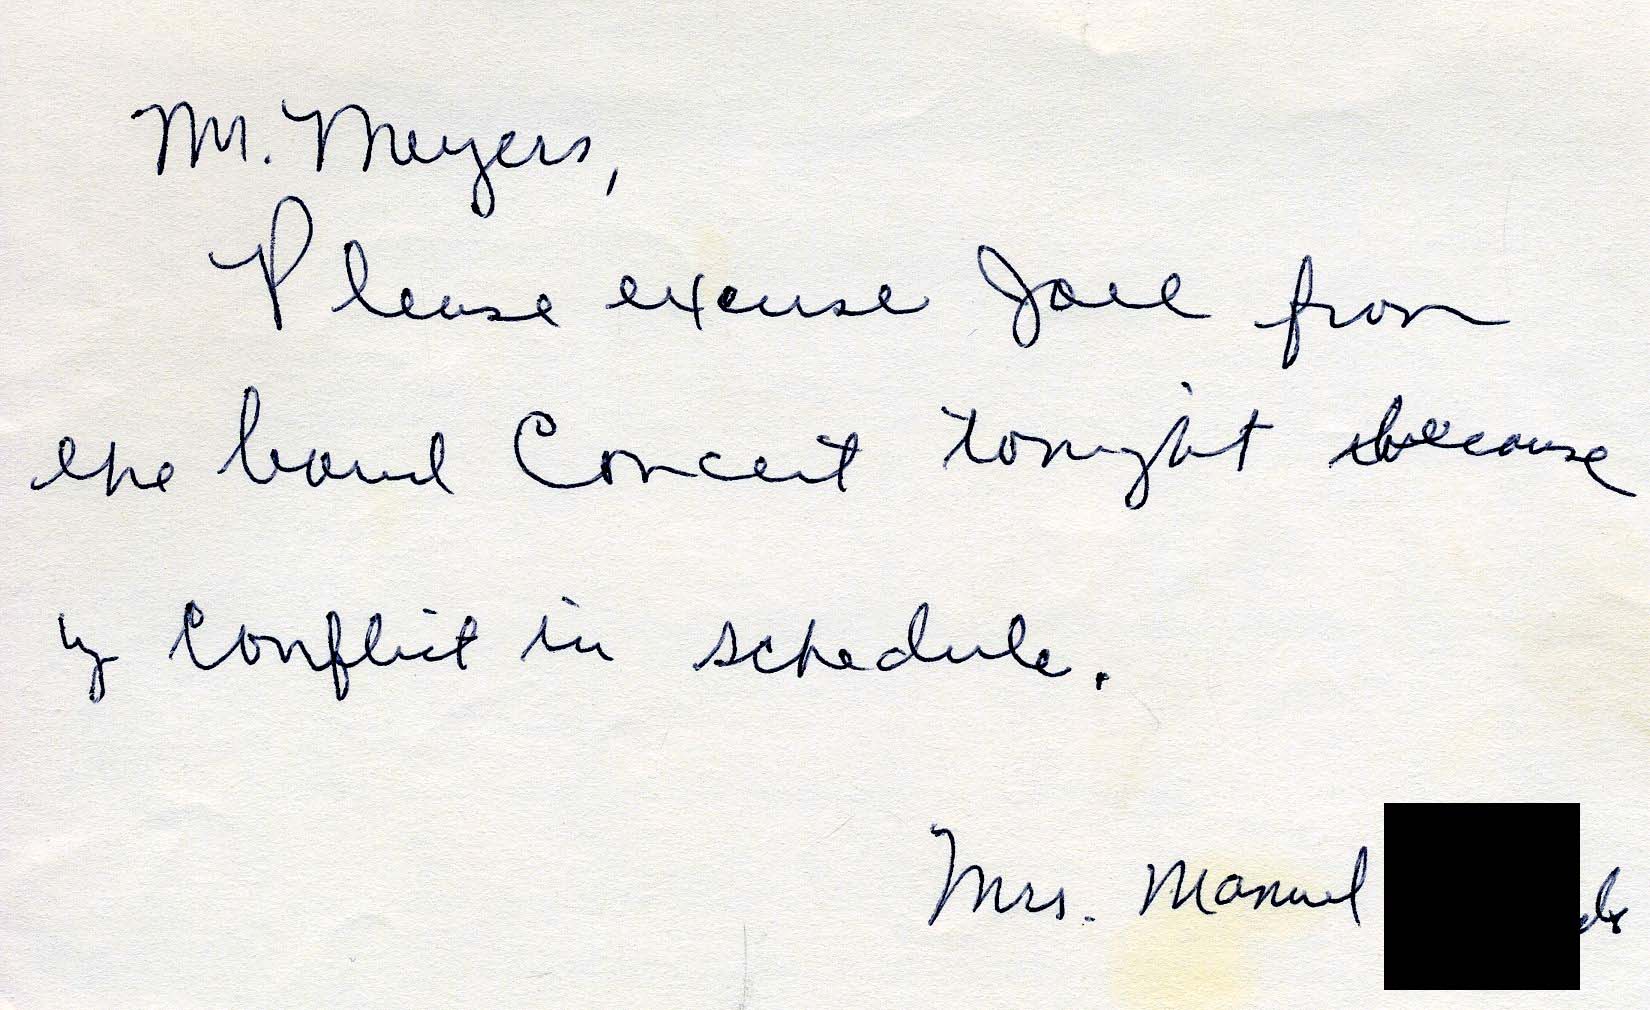 Mr. Meyers,
Please excuse Joel from
the band Concert tonight because
of Conflict in schedule.
Mrs. Manuel